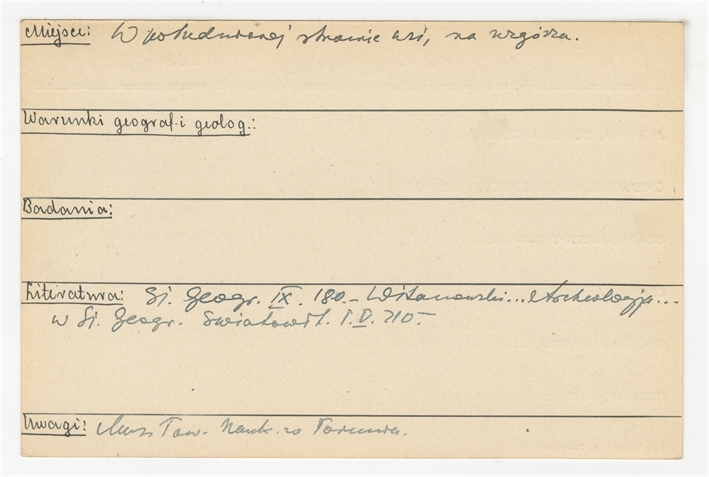 Miejsce: W południowej stronie wsi, na wzgórzu.
Warunki geograf. i geolog.:
Badania:
Literatura: Sł. Geogr. IX. 180. – Witanowski... Archeologja...
w Sł. Geogr. Światowit. T. V. 210 –
Uwagi: Muz. Tow. Nauk. w Toruniu.